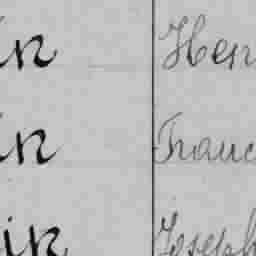 in Hen
in Franc
in Joseph